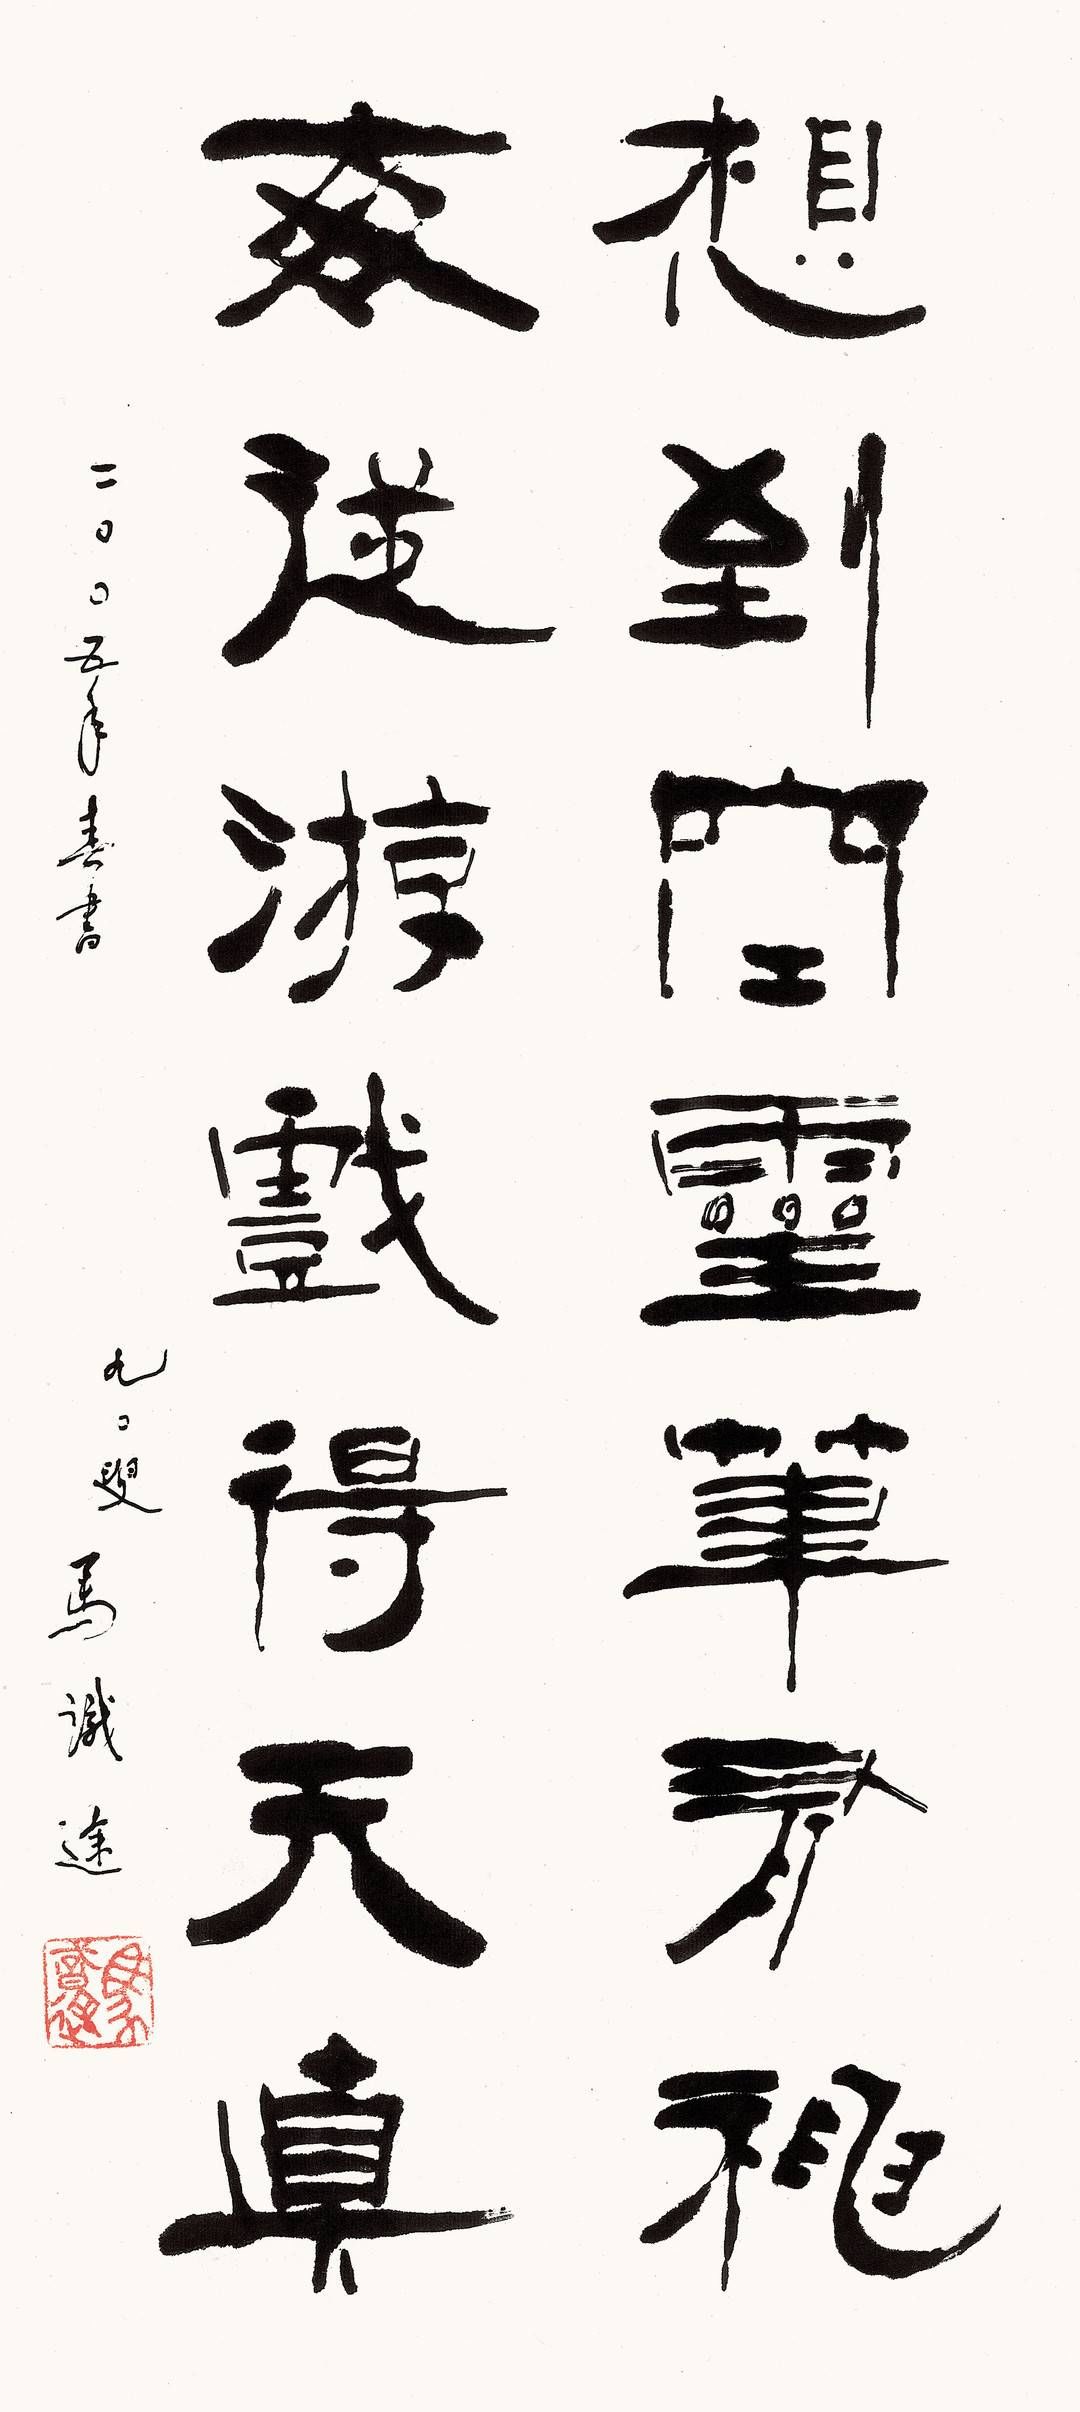 想到空靈筆有神
每從游戲得天真
二〇〇五年春書
九〇叟 馬識途